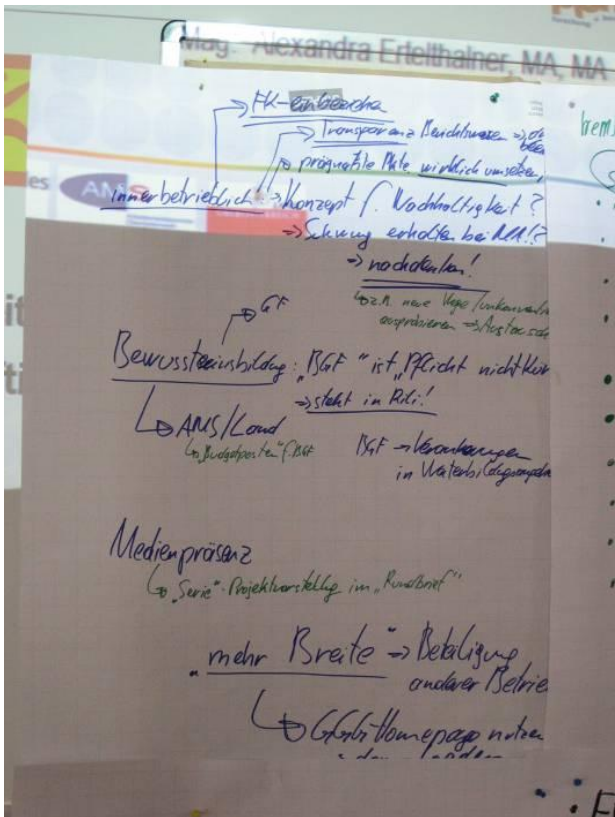 Mag. Alexandra Ertelthalner, MA, MA
→ FK-einbeziehen
→ Transparenz Berichtswesen ⇒
→ wirklich umsetzen,
es AMS
innerbetrieblich → Konzept f. Nachhaltigkeit?
⇒ Schwung erhalten bei MA!?
⇒ nachdenken!
↳ z.B. neue Wege /
ausprobieren ⇒ Austausch
→ GF
Bewusstseinsbildung: „BGF" ist „Pflicht nicht Kür
⇒ steht in Rili!
↳ AMS/Land
↳ „Budgetposten" f. BGF
BGF → Verankerungen
in
Medienpräsenz
↳ „Serie" - Projektvorstellg im „Rundbrief"
„mehr Breite" ⇒ Beteiligung
anderer Betrie
↳ Homepage nutzen